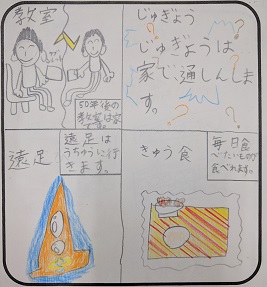 教室
50年後の
教室は家
じゅぎょう
じゅぎょうは
家で通しんしま
す。
遠足
遠足は
うちゅうに行
きます。
きゅう食
毎日食
べたいものが
食べれます。